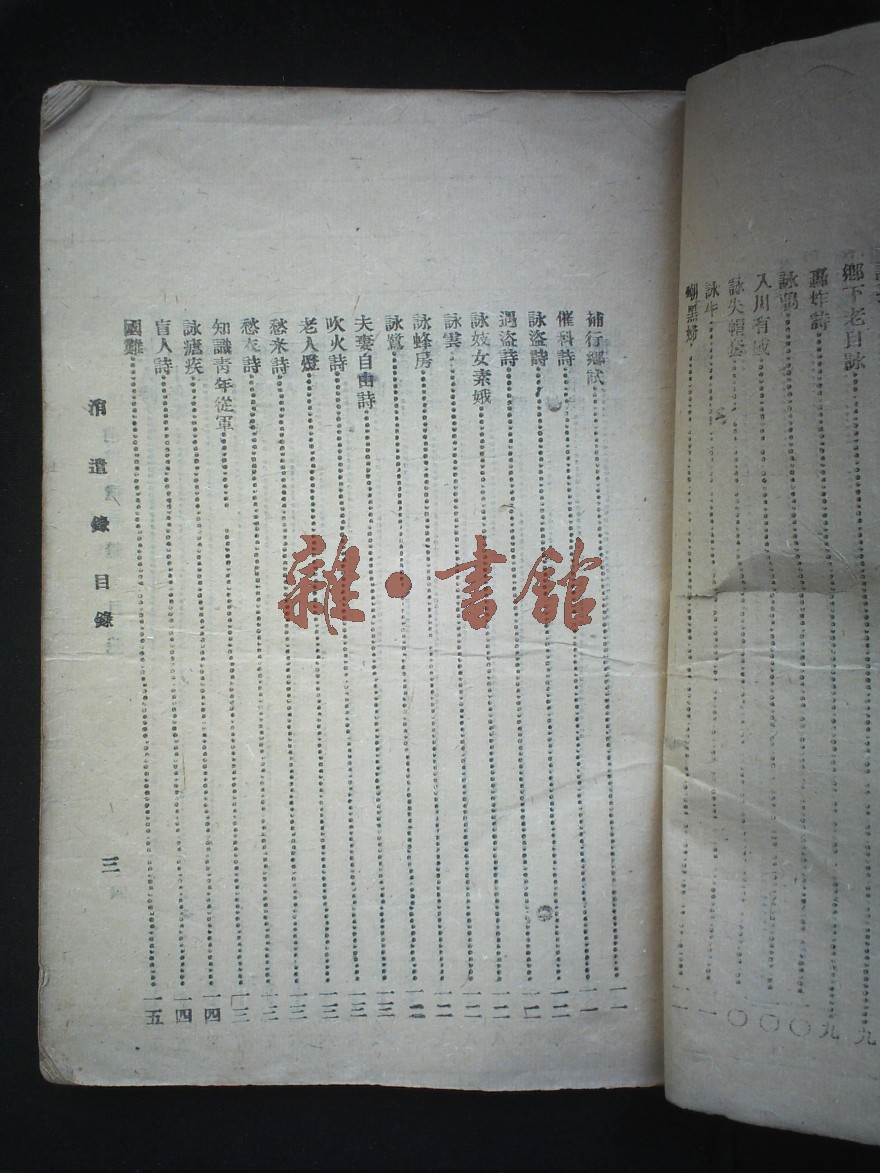 鄉下老自詠⋯⋯九
轟炸詩⋯⋯九
詠鴉⋯⋯一〇
入川有感⋯⋯一〇
詠失帽套⋯⋯一〇
詠牛⋯⋯一一
嘲黑婦⋯⋯一一
補行鄉試⋯⋯一一
催科詩⋯⋯一一
詠盜詩⋯⋯一二
遇盜詩⋯⋯一二
詠妓女素娥⋯⋯一二
詠雲⋯⋯一二
詠蜂房⋯⋯一二
詠鷺⋯⋯一三
夫妻自由詩⋯⋯一三
吹火詩⋯⋯一三
老人燈⋯⋯一三
愁米詩⋯⋯一三
愁衣詩⋯⋯一三
知識青年從軍⋯⋯一四
詠瘧疾⋯⋯一四
盲人詩⋯⋯一四
國難⋯⋯一五
消遣錄目錄
三
雜·書館